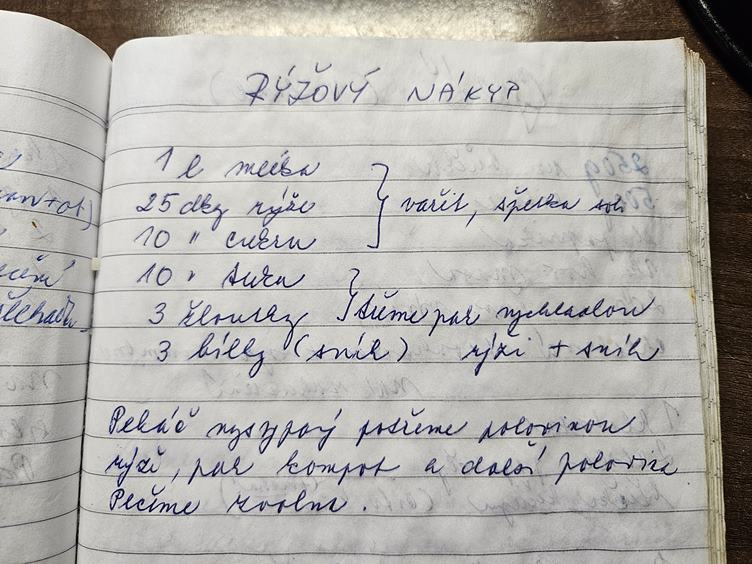 RÝŽOVÝ NÁKYP
1 l mléka
25 dkg rýže } vařit, špetka soli
10 " cukru
10 " tuku
3 žloutky } třeme pak vychladlou
3 bílky (sníh) rýži + sníh
Pekáč vysypaný potřeme polovinou
rýží, pak kompot a další polovina
Pečeme zvolna.